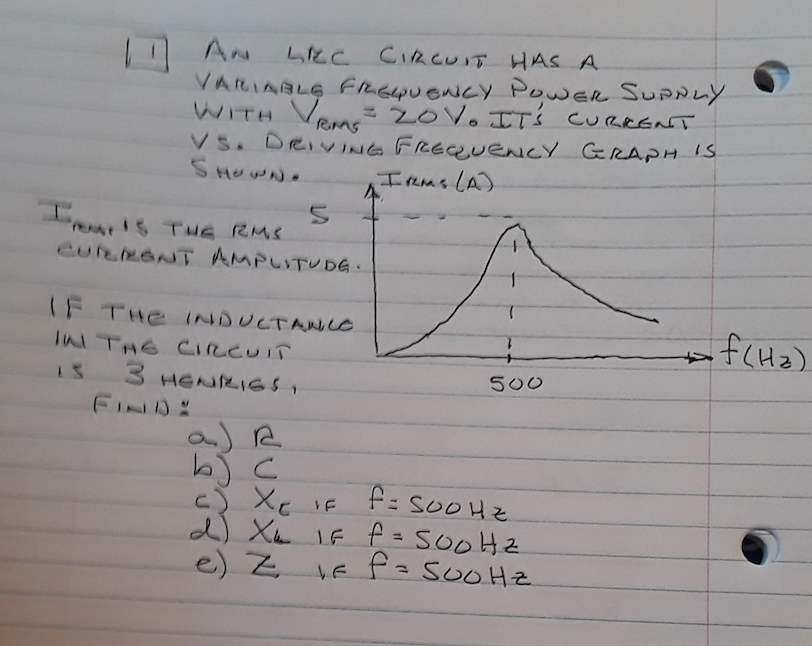 1 AN LRC CIRCUIT HAS A
VARIABLE FREQUENCY POWER SUPPLY
WITH VRMS = 20V. IT'S CURRENT
VS. DRIVING FREQUENCY GRAPH IS
SHOWN.
IRMS (A)
5
IRMS IS THE RMS
CURRENT AMPLITUDE.
IF THE INDUCTANCE
IN THE CIRCUIT
IS 3 HENRIES,
FIND:
f(Hz)
500
a) R
b) C
c) XC IF f = 500 Hz
d) XL IF f = 500 Hz
e) Z IF f = 500 Hz